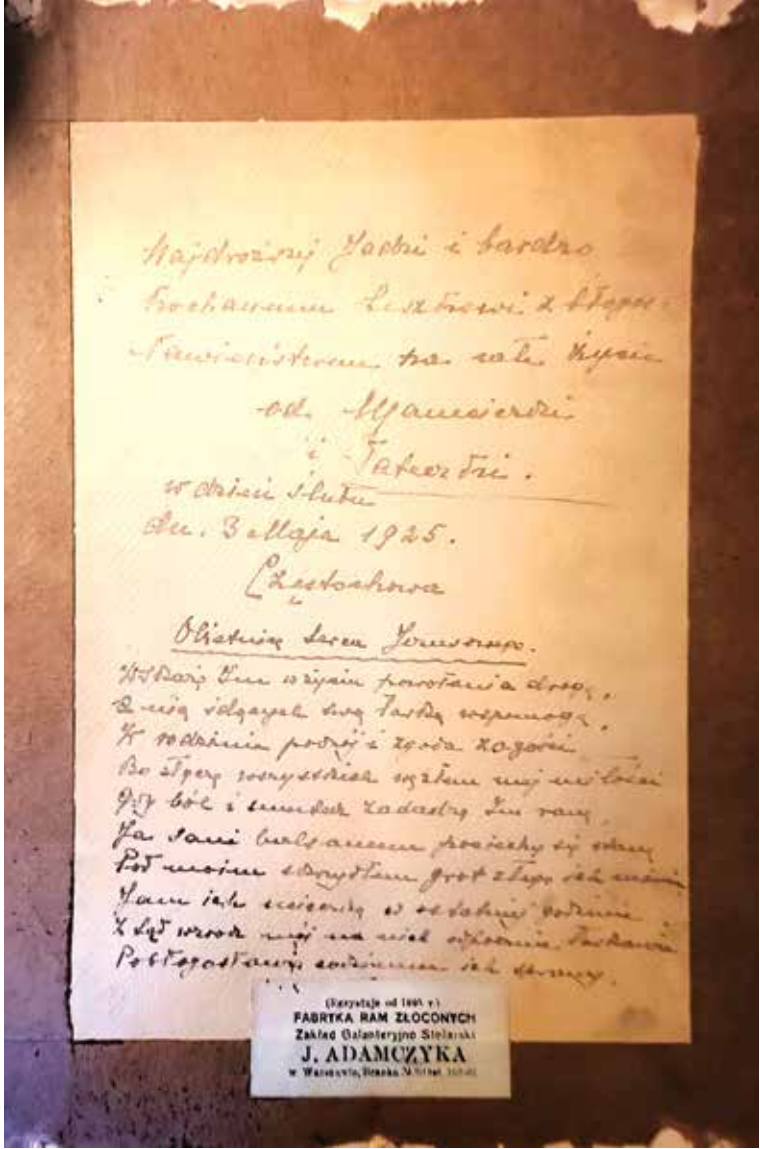 Najdroższej Jadzi i bardzo
kochanemu Leszkowi z błogos-
ławieństwem na całe życie
od Mamusieńki
i Tateńki.
w dzień ślubu
dn. 3 Maja 1925.
Częstochowa
Obietnice Serca Jezusowego.
Wskażę Im w życiu powołania drogę,
Z nią idących swą łaską wspomogę,
W rodzinie pokój i zgoda zagości
Bo złączę wszystkich węzłem mej miłości
Gdy ból i smutek zadadzą Im ranę,
Ja sam balsamem pociechy się stanę
Pod moim skrzydłem grot złego ich minie
Jam ich ucieczką w ostatniej godzinie
Z Łąd wzrok mój na nich skłonię łaskawie
Pobłogosławię codzienne ich sprawy.
(Egzystuje od 1898 r.)
FABRYKA RAM ZŁOCONYCH
Zakład Galanteryjno Stolarski
J. ADAMCZYKA
w Warszawie,